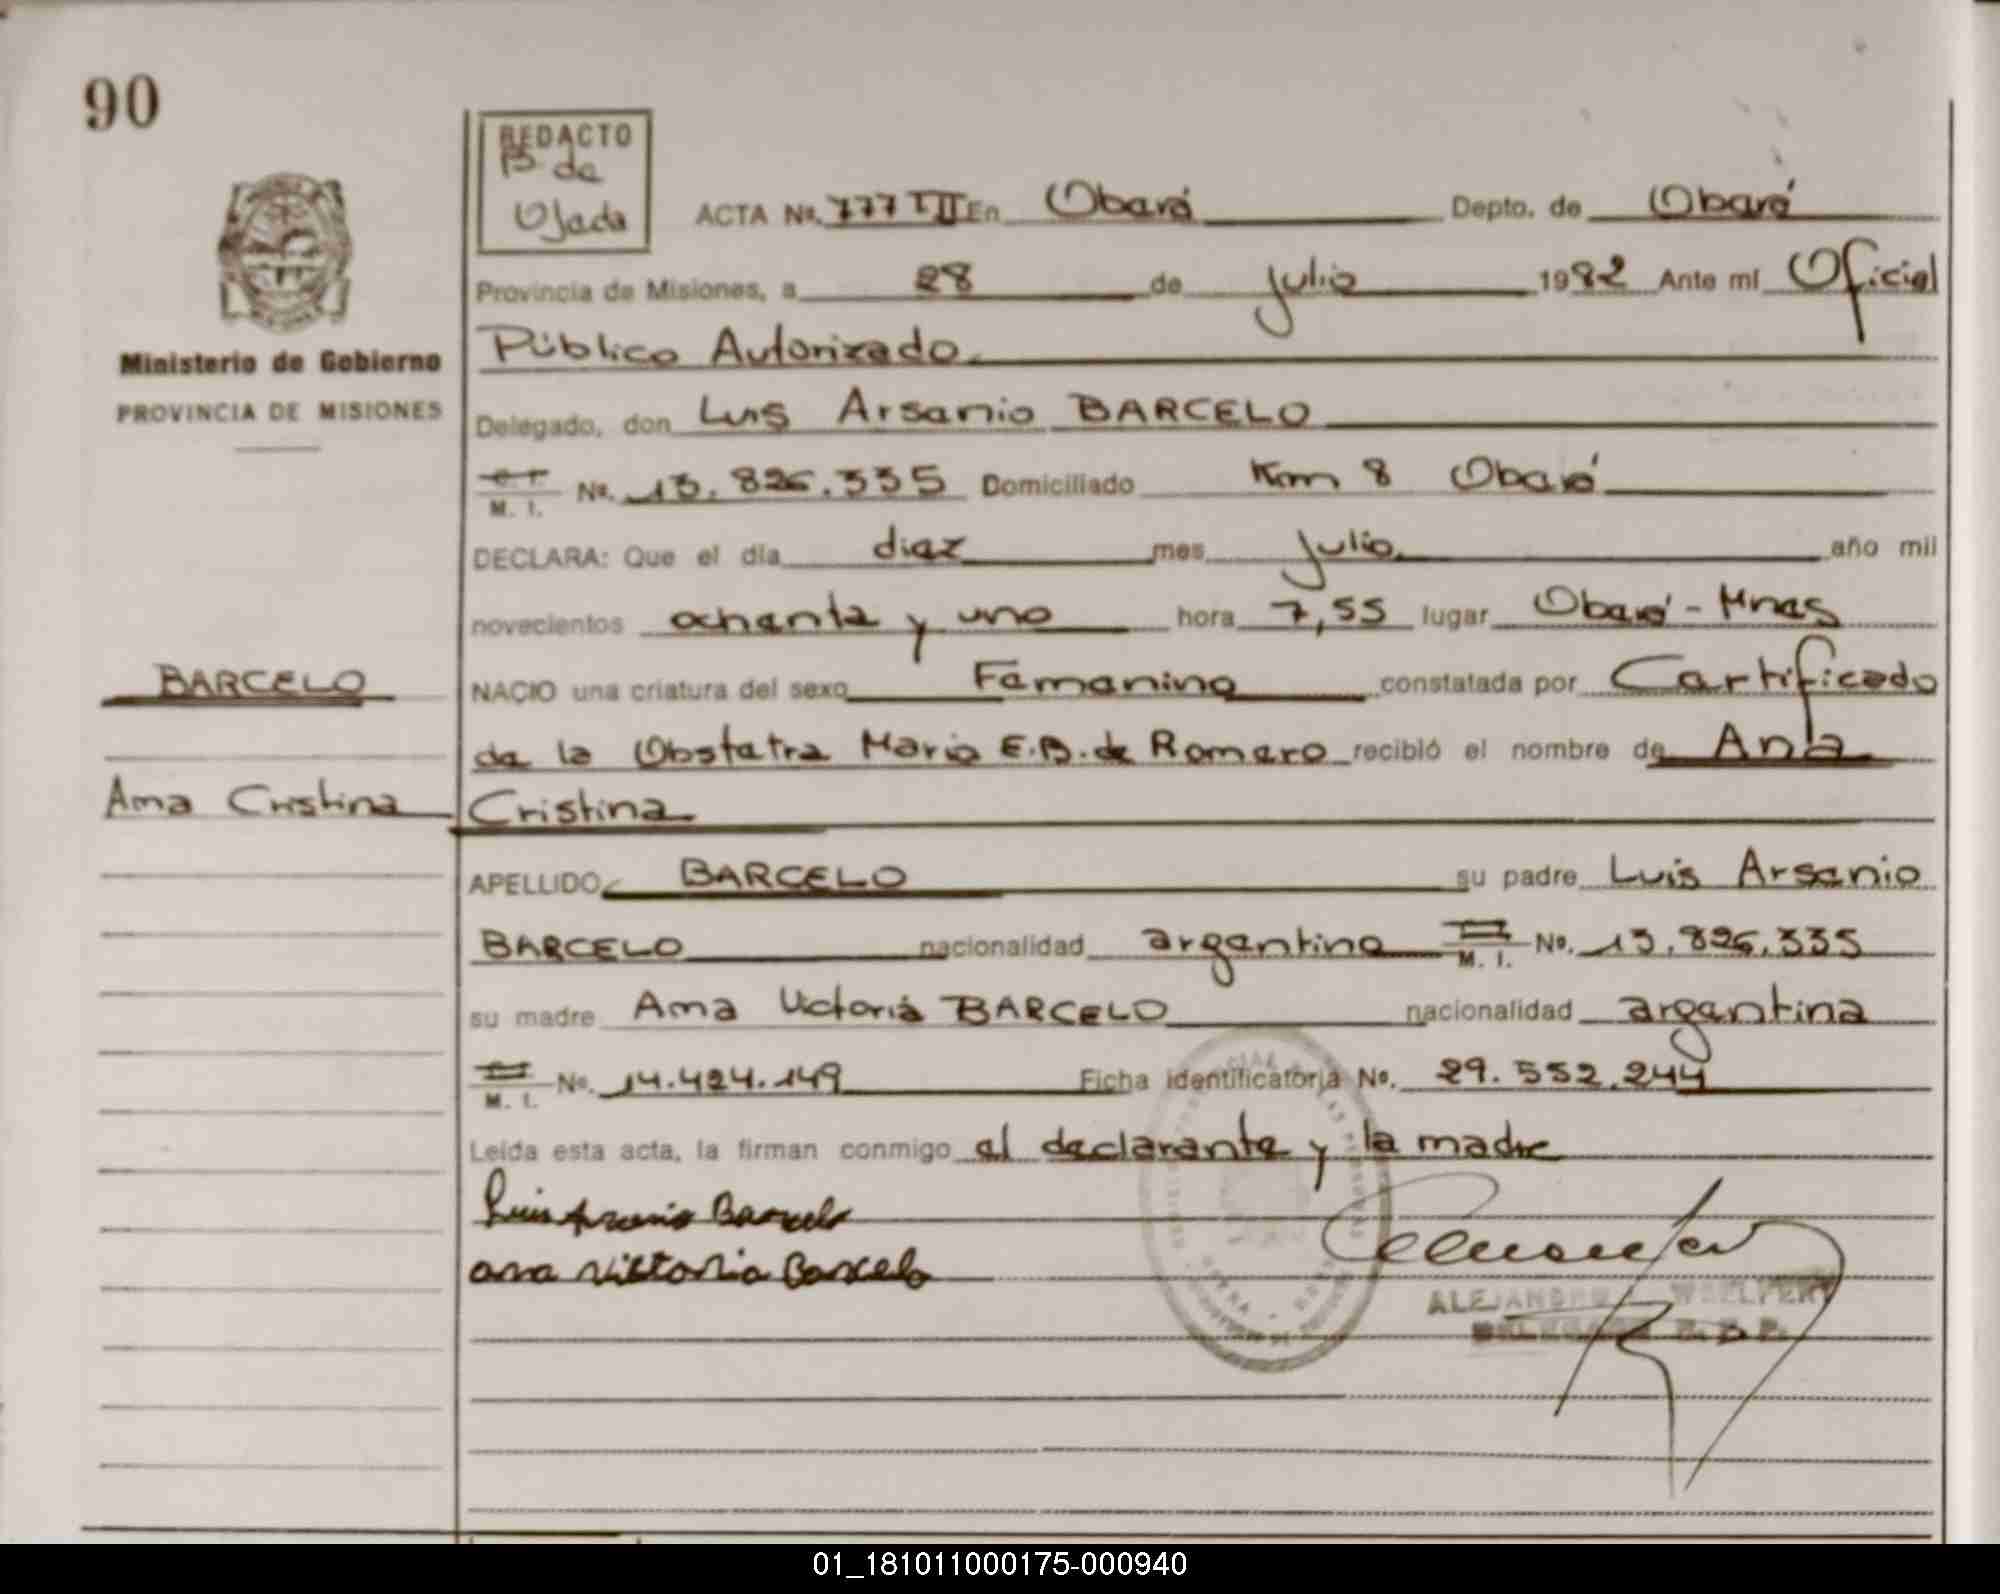 90
REDACTO
B. de
Ojeda
ACTA No. 777 T II En Oberá Depto. de Oberá
Provincia de Misiones, a 28 de julio 1982 Ante mí Oficial
Ministerio de Gobierno
PROVINCIA DE MISIONES
Público Autorizado.
Delegado, don Luis Arsenio BARCELO
M. I. No. 13.826.335 Domiciliado Km 8 Oberá
DECLARA: Que el día diez mes julio año mil
novecientos ochenta y uno hora 7,55 lugar Oberá - Mnes
BARCELO
NACIO una criatura del sexo Femenino constatada por Certificado
de la Obstetra Maria E.B. de Romero recibió el nombre de Ana
Ana Cristina
Cristina
APELLIDO BARCELO su padre Luis Arsenio
BARCELO nacionalidad argentino M. I. No. 13.826.335
su madre Ana Victoria BARCELO nacionalidad argentina
M. I. No. 14.424.149 Ficha identificatoria No. 29.552.244
Leída esta acta, la firman conmigo el declarante y la madre
Luis Arsenio Barcelo
ana Victoria Barcelo
ALEJANDRO WOELFERT
01_181011000175-000940